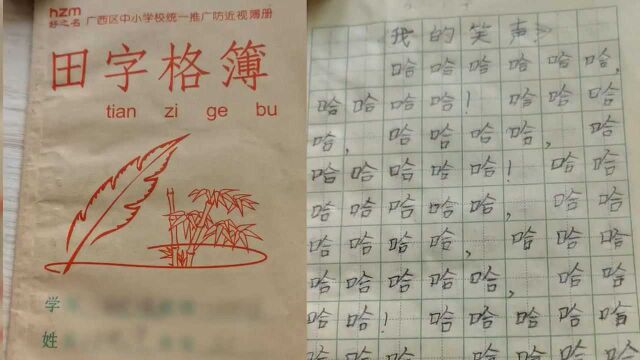 hzm
好之名
广西区中小学校统一推广防近视薄册
田字格簿
tian zi ge bu
学
姓
我的笑声
哈哈哈哈哈哈,
哈哈哈哈!哈哈哈
哈,哈哈哈哈,哈
哈哈哈哈哈!哈哈
哈哈哈哈哈,哈哈
哈哈哈哈,哈哈哈
哈哈哈哈哈,哈哈
哈哈!哈哈哈哈哈
哈哈哈哈哈哈哈哈